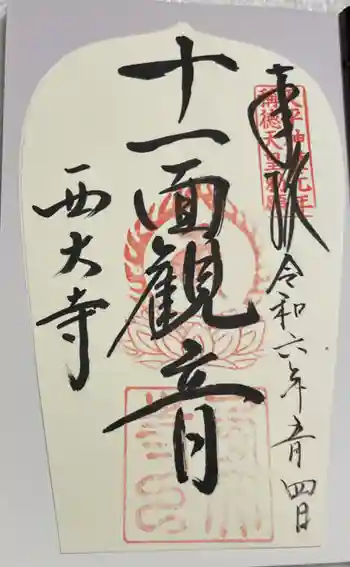 奉拝
令和六年五月四日
十一面観音
西大寺